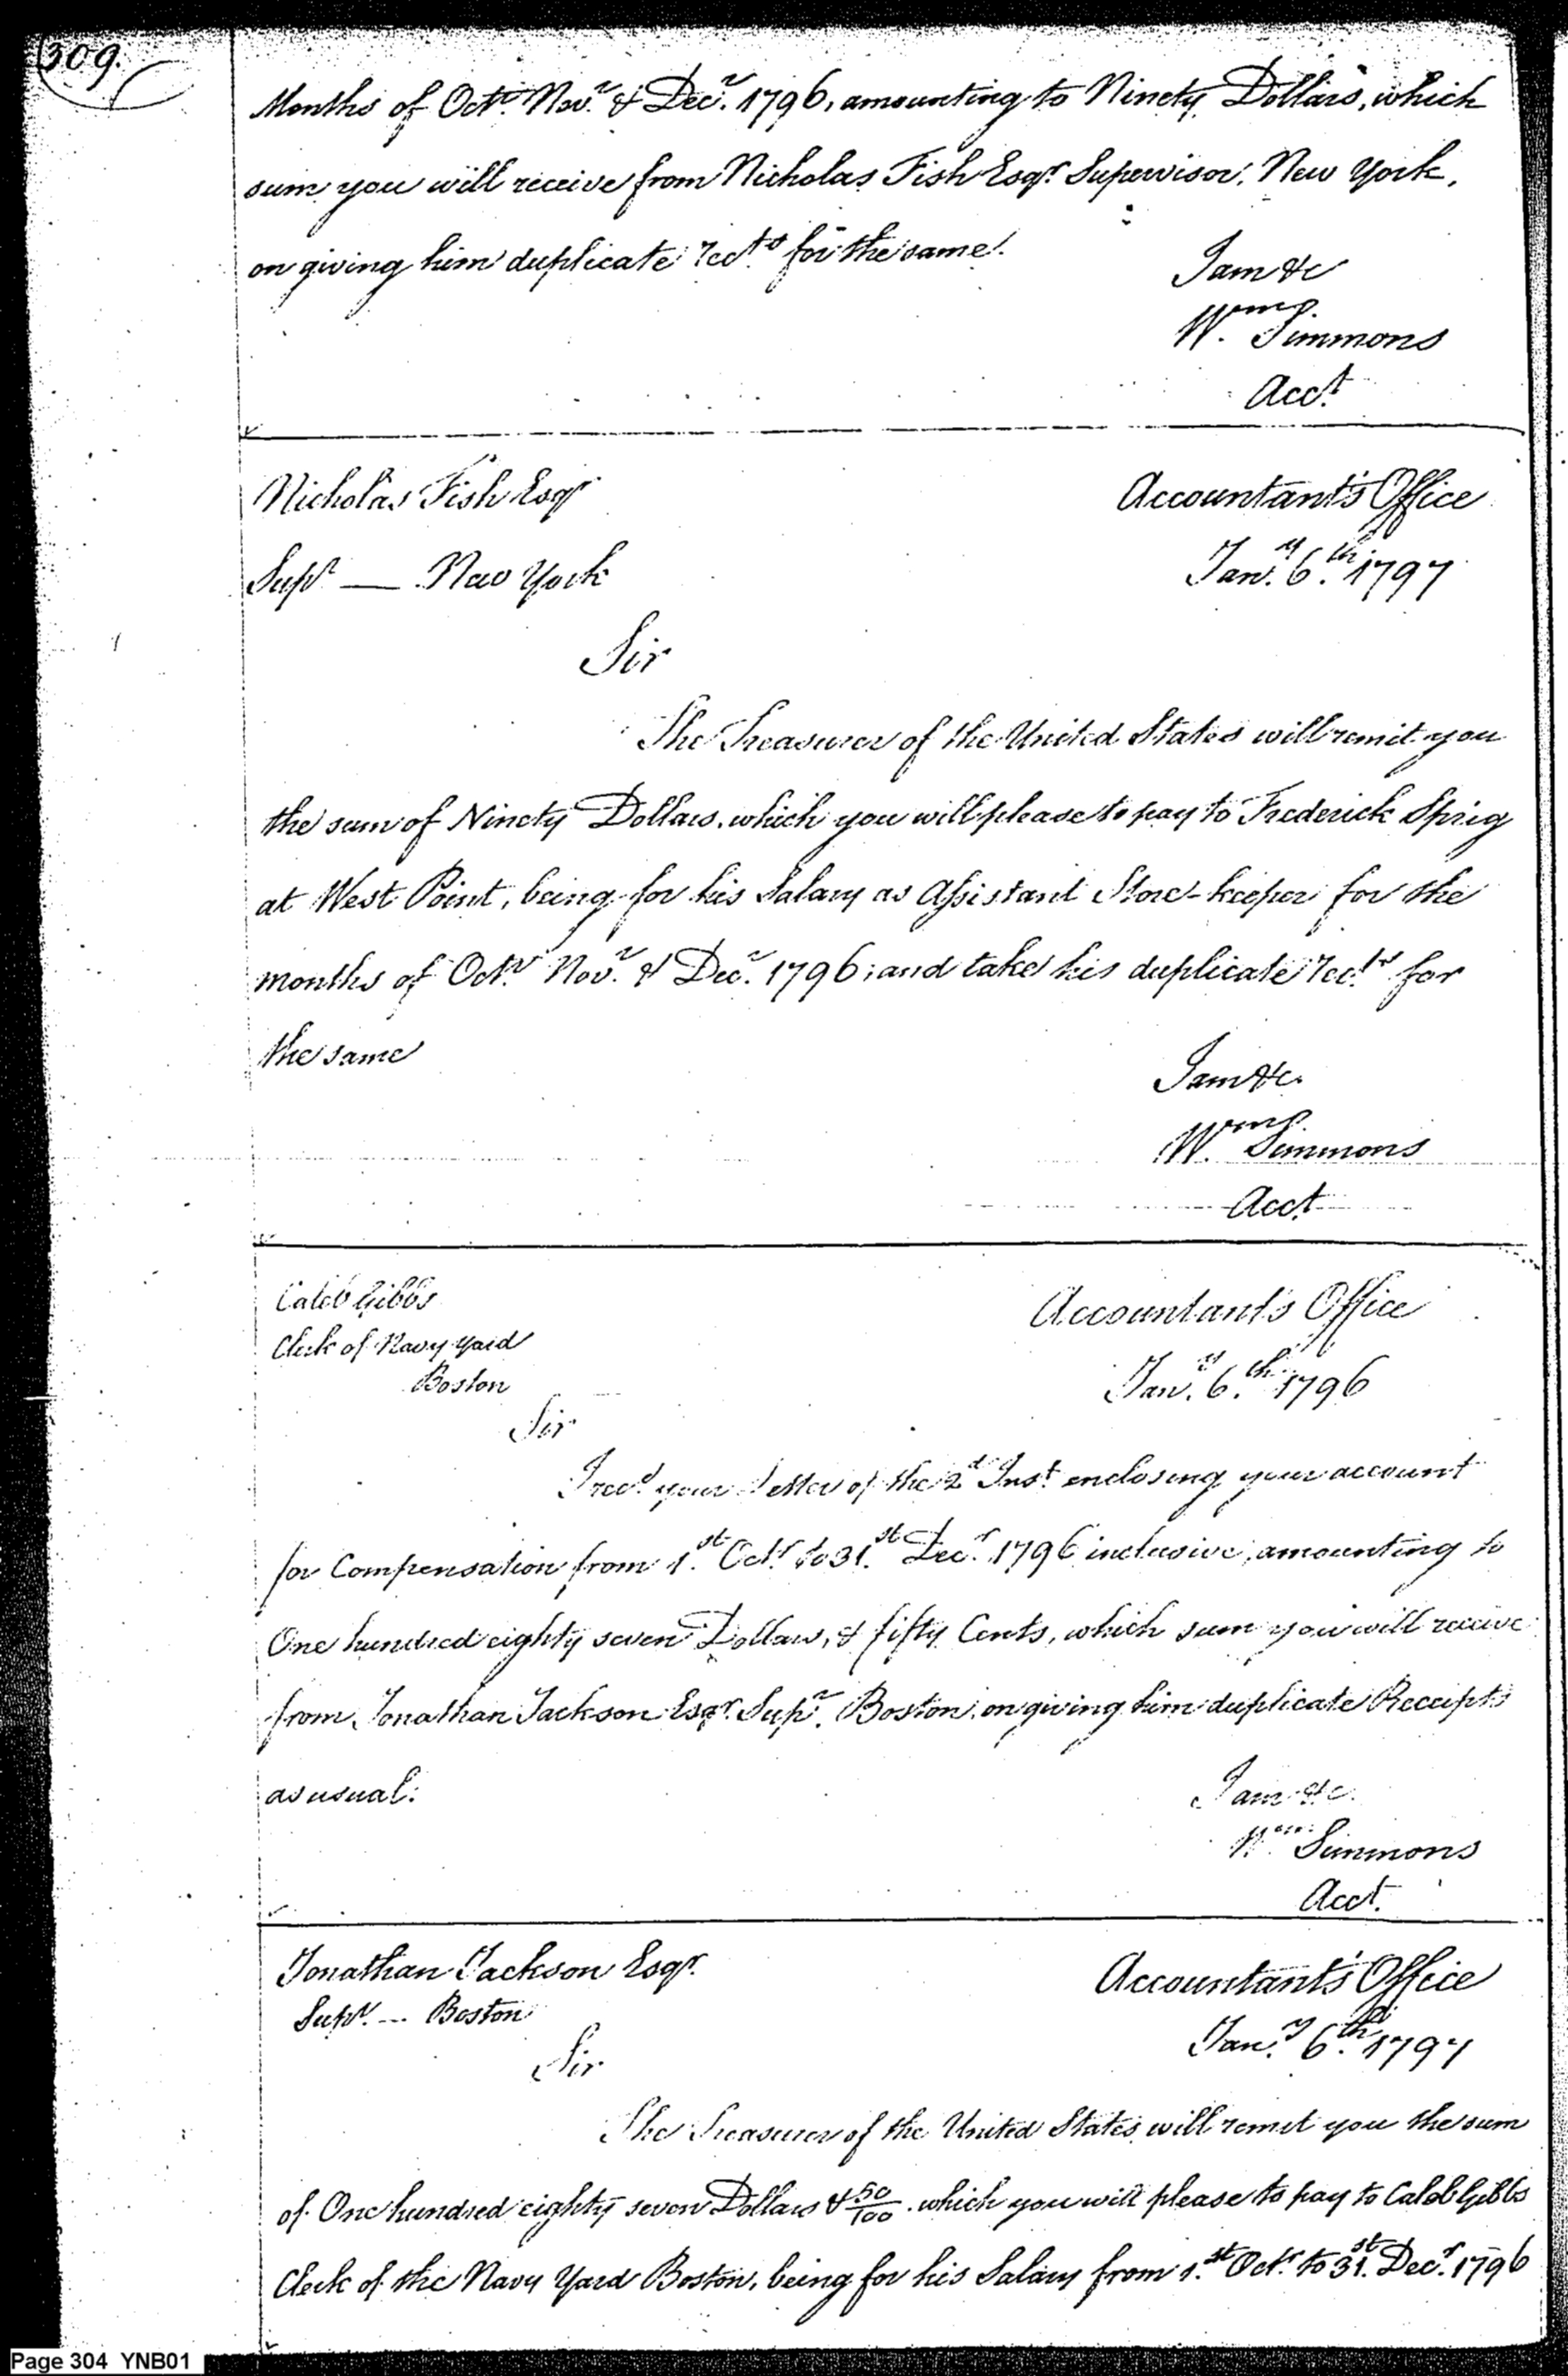 309.
Months of Octr. Novr. & Decr. 1796, amounting to Ninety Dollars, which
sum you will receive from Nicholas Fish Esqr. Supervisor, New York,
on giving him duplicate recta. for the same.
I am &c
Wm. Simmons
Acct.
Nicholas Fish Esqr
Supr — New York
Accountant's Office
Jany. 6th. 1797
Sir
The Treasurer of the United States will remit you
the sum of Ninety Dollars, which you will please to pay to Frederick Sprig
at West Point, being for his Salary as Assistant Store-keeper for the
months of Octr. Novr. & Decr. 1796, and take his duplicate rects. for
the same
I am &c.
Wm. Simmons
Acct.
Caleb Gibbs
Clerk of Navy Yard
Boston
Accountant's Office
Jany. 6th. 1796
Sir
I recd. your Letter of the 2d Inst. enclosing your account
for Compensation from 1st. Octr. to 31st. Decr. 1796 inclusive, amounting to
One hundred eighty seven Dollars, & fifty Cents, which sum you will receive
from Jonathan Jackson Esqr. Supr. Boston, on giving him duplicate Receipts
as usual.
I am &c.
Wm. Simmons
Acct.
Jonathan Jackson Esqr.
Supr. — Boston
Accountant's Office
Jany. 6th. 1797
Sir
The Treasurer of the United States will remit you the sum
of One hundred eighty seven Dollars & 50/100 which you will please to pay to Caleb Gibbs
Clerk of the Navy Yard Boston, being for his Salary from 1st. Octr. to 31st. Decr. 1796
Page 304 YNB01